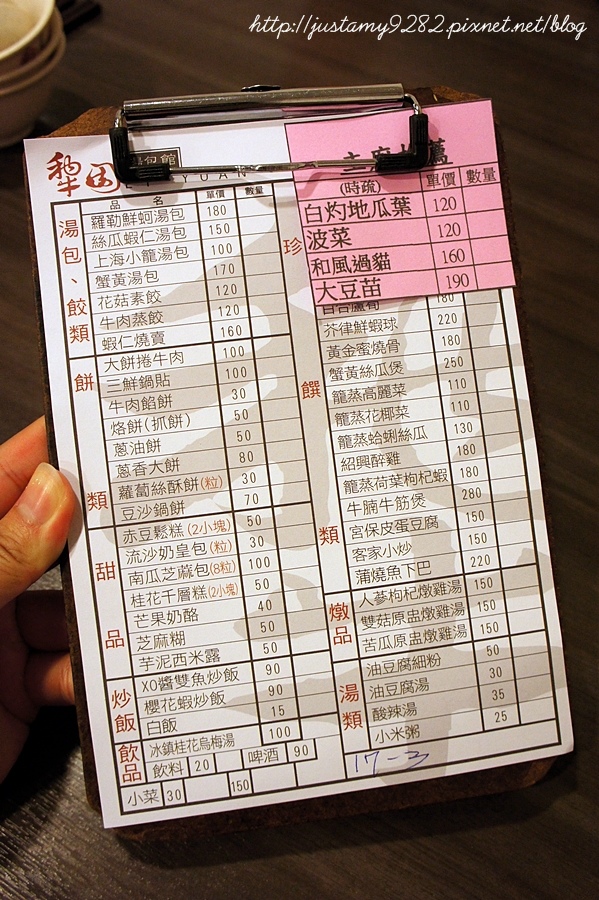 http://justamy9282.pixnet.net/blog
犂园 湯包館
LI YUAN
品 名 單價 數量
湯包、餃類
羅勒鮮蚵湯包 180
絲瓜蝦仁湯包 150
上海小籠湯包 100
蟹黃湯包 170
花菇素餃 120
牛肉蒸餃 120
蝦仁燒賣 160
餅類
大餅捲牛肉 100
三鮮鍋貼 100
牛肉餡餅 30
烙餅(抓餅) 50
蔥油餅 50
蔥香大餅 80
蘿蔔絲酥餅(粒) 30
豆沙鍋餅 70
甜品
赤豆鬆糕(2小塊) 50
流沙奶皇包(粒) 30
南瓜芝蔴包(8粒) 100
桂花千層糕(2小塊) 50
芒果奶酪 40
芝麻糊 50
芋泥西米露 50
炒飯
XO醬雙魚炒飯 90
櫻花蝦炒飯 90
白飯 15
飲品
冰鎮桂花烏梅湯 100
飲料 20 啤酒 90
小菜 30 150
(時疏) 單價 數量
白灼地瓜葉 120
波菜 120
和風過貓 160
大豆苗 190
珍饌類
百合蘆筍 180
芥律鮮蝦球 220
黃金蜜燒骨 180
蟹黃絲瓜煲 250
籠蒸高麗菜 110
籠蒸花椰菜 110
籠蒸蛤蜊絲瓜 130
紹興醉雞 180
籠蒸荷葉枸杞蝦 280
牛腩牛筋煲 280
宮保皮蛋豆腐 150
客家小炒 150
蒲燒魚下巴 220
燉品
人蔘枸杞燉雞湯 150
雙菇原盅燉雞湯 150
苦瓜原盅燉雞湯 150
湯類
油豆腐細粉 50
油豆腐湯 30
酸辣湯 35
小米粥 25
17-3